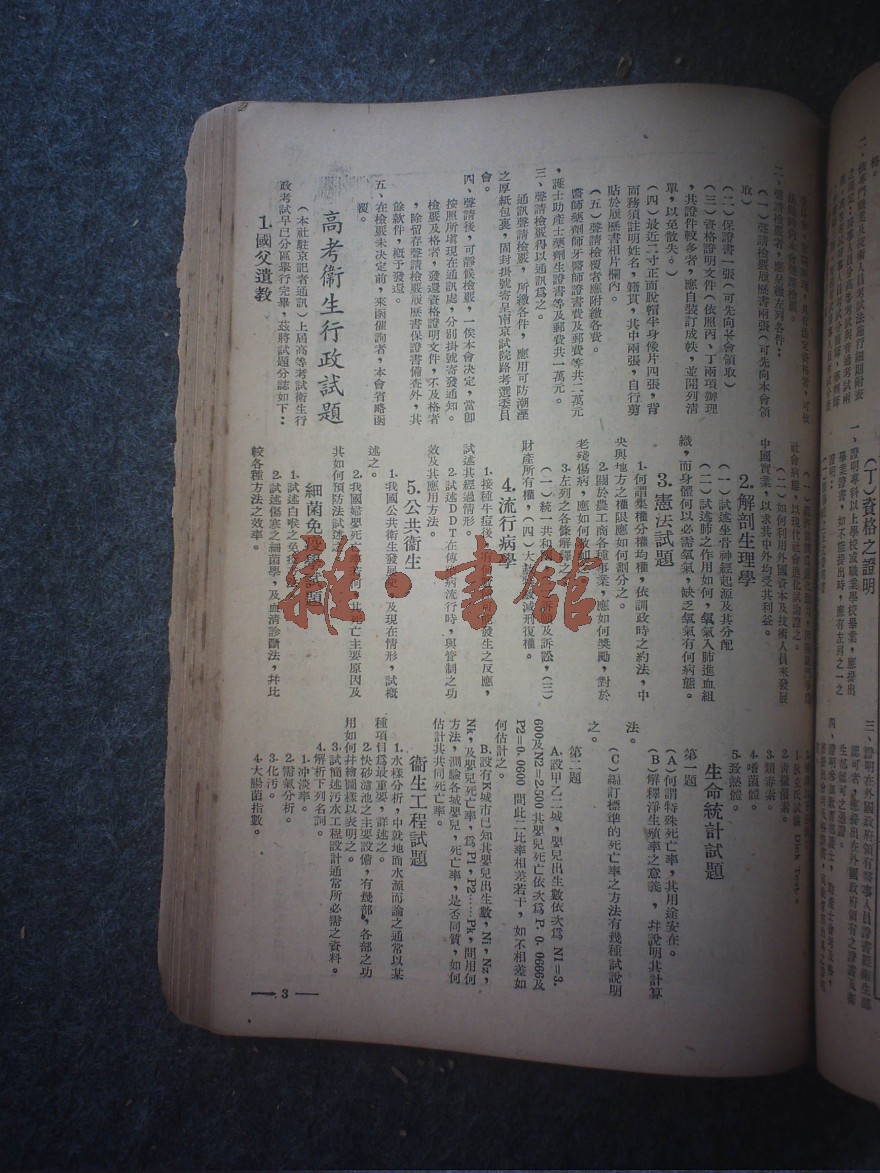 二、聲請檢覈者，應呈繳左列各件：
（一）聲請檢覈履歷書兩張（可先向本會領
取）
（二）保證書一張（可先向本會領取）
（三）資格證明文件（依照丙、丁兩項辦理
，其證件較多者，應自裝訂成帙，並開列清
單，以免散失。）
（四）最近二寸正面脫帽半身像片四張，背
面務須註明姓名，籍貫，其中兩張，自行剪
貼於履歷書相片欄內。
（五）聲請檢覈者應附繳各費。
醫師藥劑師牙醫師證書費及郵費等共二萬元
，護士助產士藥劑生證書等及郵費共一萬元。
三、聲請檢覈得以通訊為之。
通訊聲請檢覈，所繳各件，應用可防潮溼
之厚紙包裹，固封掛號寄呈南京試院路考選委員
會。
四、聲請後，可靜候檢覈，一俟本會決定，當卽
按照所塡現在通訊處，分別掛號寄發通知。
檢覈及格者，發還資格證明文件，不及格者
，除留存聲請檢覈履歷書保證書備查外，其
餘欵件，概予發還。
五、在檢覈未決定前，來函催詢者，本會省略函
覆。
高考衞生行政試題
（本社駐京記者通訊）上屆高等考試衞生行
政考試早已分區舉行完畢，茲將試題分誌如下：
1.國父遺敎
社會病態，以現代社會進化試論證之。
（二）如何利用外國資本及技術人員來發展
中國實業，以求其中外均受其利益。
2.解剖生理學
（一）試述坐骨神經起源及其分配
（二）試述肺之作用如何，氧氣入肺進血組
織，而身體何以必需氧氣，缺乏氧氣有何病態。
3.憲法試題
1.何謂集權分權均權，依訓政時之約法，中
央與地方之權限應如何劃分之。
2.關於農工商各種事業，應如何獎勵，對於
老殘傷病，應如何
3.左列之各條解釋之
（一）統一共和國 訴願及訴訟，（三）
財產所有權，（四）大赦 減刑復權。
4.流行病學
1.接種牛痘後， 發生之反應，
試述其經過情形。
2.試述DDT在傳 病流行時，與管制之功
效及其應用方法。
5.公共衞生
1.我國公共衞生發展史 及現在情形，試概
述之。
2.我國婦嬰死亡率 何，其死亡主要原因及
其如何預防法試述之
細菌免疫學試題
1.試述白喉之免疫
2.試述傷寒之細菌學，及血清診斷法，幷比
較各種方法之效率。
Dick Test.
3.類毒素。
4.嗜菌體。
5.致熱體。
生命統計試題
第一題
（A）何謂特殊死亡率，其用途安在。
（B）解釋淨生殖率之意義，幷說明其計算
法。
（C）編訂標準的死亡率之方法有幾種試說明
之。
第二題
A.設甲乙二城，嬰兒出生數依次為 N1＝3.
600及N2＝2.500其嬰兒死亡依次為 P 0. 0666及
P2＝0. 0600 問此二比率相差若干，如不相差如
何估計之。
B.設有K城市已知其嬰兒出生數，N1，N2，
Nk，及嬰兒死亡率，為 P1，P2……Pk，問用何
方法，測驗各城嬰兒，死亡率，是否同質，如何
估計其共同死亡率。
衞生工程試題
1.水樣分析，中就地面水源而論之通常以某
種項目為最重要，詳述之。
2.快砂濾池之主要設備，有幾部，各部之功
用如何幷繪圖樣以表明之。
3.試簡述污水工程設計通常所必需之資料。
4.解析下列名詞。
1.沖淡率。
2.需氧分析。
3.化污。
4.大腸菌指數。
3
（丁）資格之證明
一、證明專科以上學校或職業學校畢業，應提出
畢業證書，如不能提出時，應有左列之一之
證明：
雜·書館